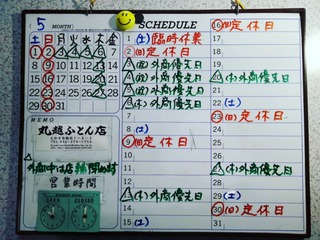 5 MONTH
SCHEDULE
土 日 月 火 水 木 金
1 2 3 4 5 6 7
8 9 10 11 12 13 14
15 16 17 18 19 20 21
22 23 24 25 26 27 28
29 30 31
MEMO
丸越ふとん店
外商中は店舗閉め時
営業時間
OPEN CLOSED
1 (土) 臨時休業
2 (日) 定休日
外商優先日
外商優先日
外商優先日
(木) 外商優先日
8 (土)
9 (日) 定休日
(木) 外商優先日
14
15 (土)
16 (日) 定休日
17
18
19
(木) 外商優先日
21
22 (土)
23 (日) 定休日
24
(木) 外商優先日
28
29 (土)
30 (日) 定休日
31